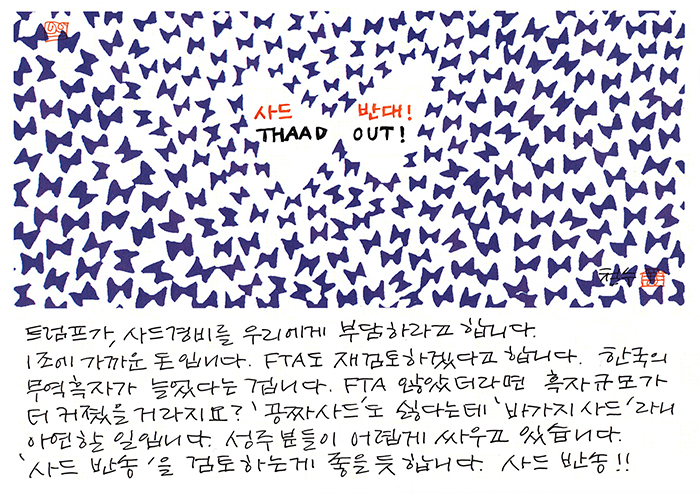 사드 반대!
THAAD OUT!
철수
트럼프가, 사드경비를 우리에게 부담하라고 합니다.
1조에 가까운 돈입니다. FTA도 재검토하겠다고 합니다. 한국의
무역흑자가 늘었다는 겁니다. FTA 않았더라면 흑자규모가
더 커졌을 거라지요? '공짜사드'도 싫다는데 '바가지 사드'라니
아연할 일입니다. 성주분들이 어렵게 싸우고 있습니다.
'사드 반송'을 검토하는게 좋을듯 합니다. 사드 반송!!